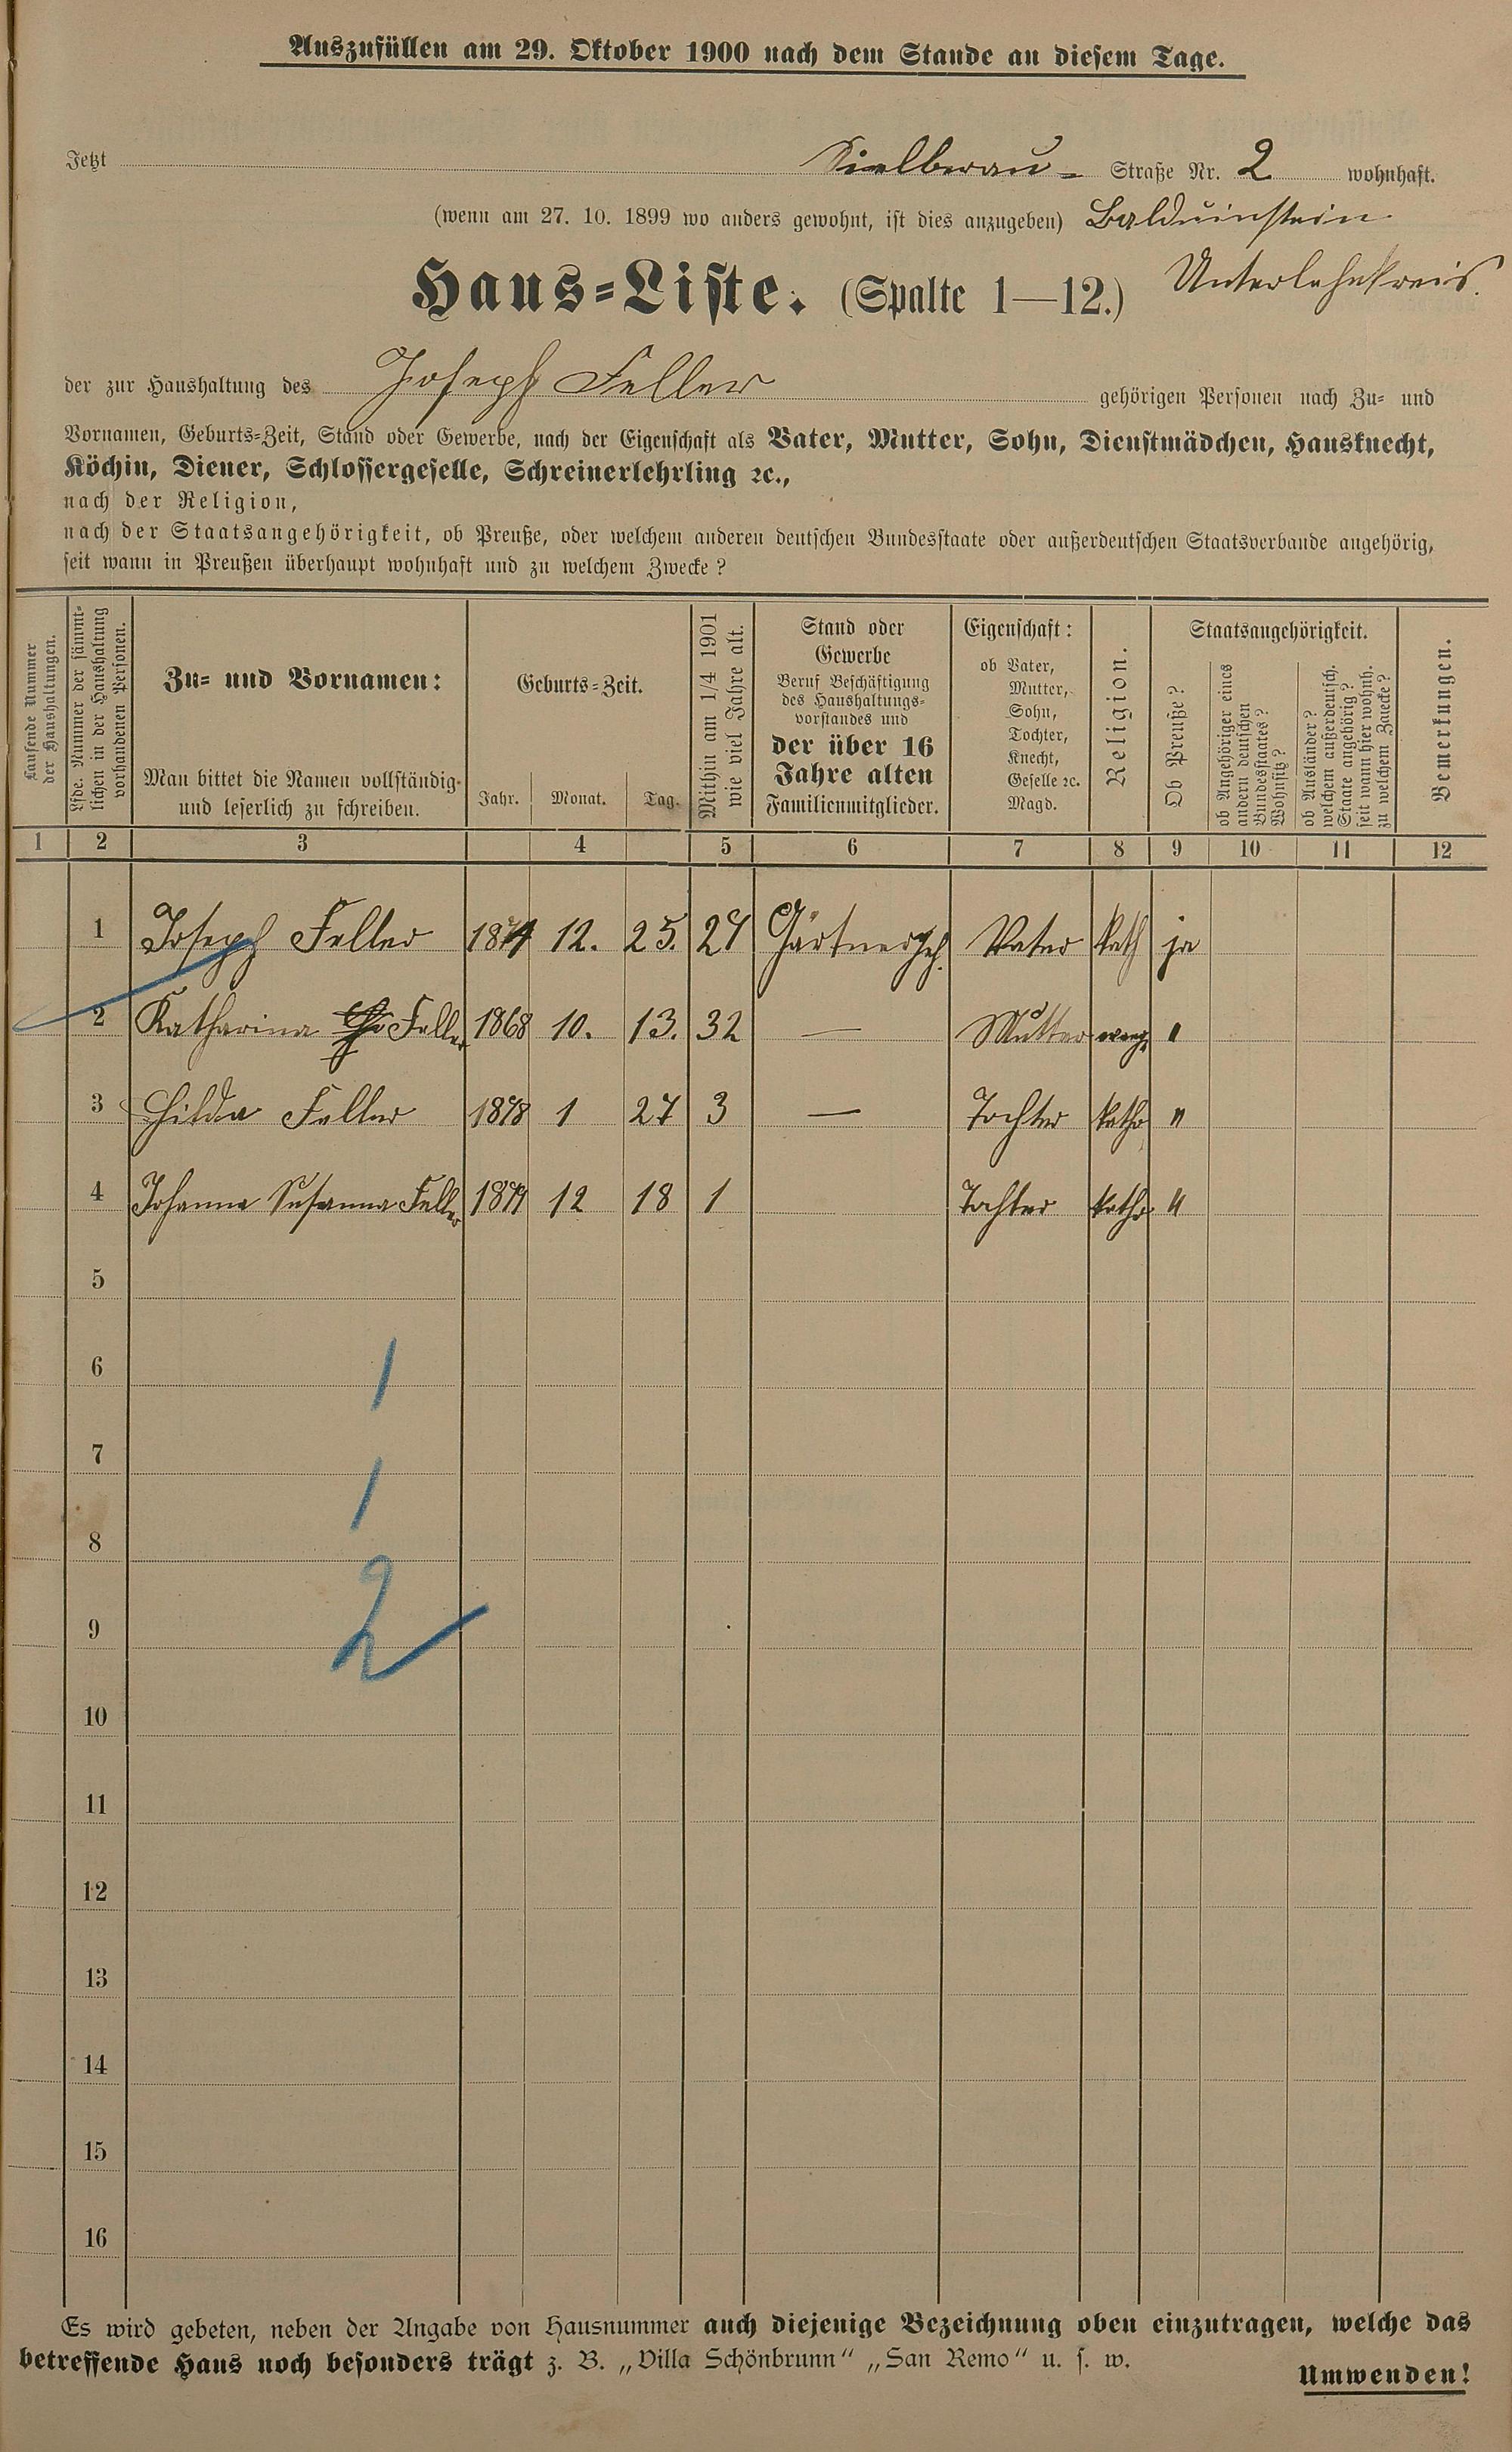 Auszufüllen am 29. Oktober 1900 nach dem Stande an diesem Tage.
Jetzt Straße Nr. 2 wohnhaft.
(wenn am 27. 10. 1899 wo anders gewohnt, ist dies anzugeben) Balduinstein
Unterlahnkreis.
Haus-Liste. (Spalte 1—12.)
der zur Haushaltung des Joseph Feller gehörigen Personen nach Zu- und
Vornamen, Geburts-Zeit, Stand oder Gewerbe, nach der Eigenschaft als Vater, Mutter, Sohn, Dienstmädchen, Hausknecht,
Köchin, Diener, Schlossergeselle, Schreinerlehrling ꝛc.,
nach der Religion,
nach der Staatsangehörigkeit, ob Preuße, oder welchem anderen deutschen Bundesstaate oder außerdeutschen Staatsverbande angehörig,
seit wann in Preußen überhaupt wohnhaft und zu welchem Zwecke?
Laufende Nummer
der Haushaltungen.
Lfde. Nummer der sämmt-
lichen in der Haushaltung
vorhandenen Personen.
Zu- und Vornamen:
Man bittet die Namen vollständig
und leserlich zu schreiben.
Geburts-Zeit.
Jahr. Monat. Tag.
Mithin am 1/4 1901
wie viel Jahre alt.
Stand oder
Gewerbe
Beruf Beschäftigung
des Haushaltungs-
vorstandes und
der über 16
Jahre alten
Familienmitglieder.
Eigenschaft:
ob Vater,
Mutter,
Sohn,
Tochter,
Knecht,
Geselle ꝛc.
Magd.
Religion.
Staatsangehörigkeit.
Ob Preuße?
ob Angehöriger eines
andern deutschen
Bundesstaates?
Wohnsitz?
ob Ausländer?
welchem außerdeutsch.
Staate angehörig?
seit wann hier wohnh.
zu welchem Zwecke?
Bemerkungen.
1 2 3 4 5 6 7 8 9 10 11 12
1 Joseph Feller 12. 25. Gärtnergeh. Vater kath ja
2 Katharina Feller 1868 10. 13. 32 — Mutter evang. "
3 Hilda Feller 1898 1 27 3 — Tochter kath "
4 Johanna Susanna Feller 1899 12 18 1 Tochter kath "
5
6 1
7 1
8
9 2
10
11
12
13
14
15
16
Es wird gebeten, neben der Angabe von Hausnummer auch diejenige Bezeichnung oben einzutragen, welche das
betreffende Haus noch besonders trägt z. B. „Villa Schönbrunn“ „San Remo“ u. s. w.
Umwenden!